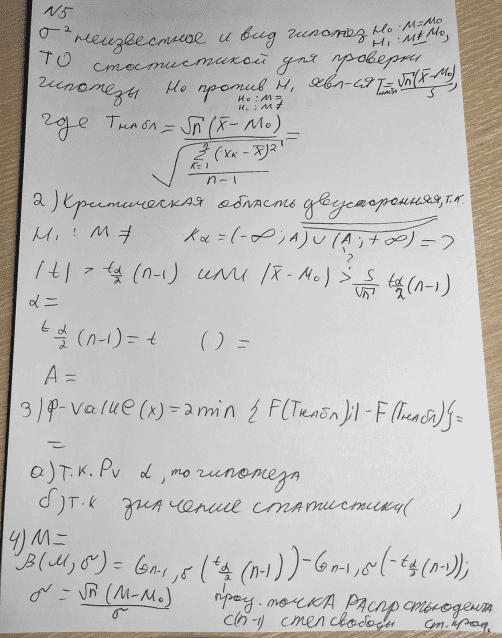 N5
σ² неизвестное и вид гипотез H₀: M=M₀
H₁: M≠M₀,
ТО статистикой для проверки
гипотезы H₀ против H₁ явл-ся Tнабл=√n(x̄-M₀)/S,
H₀: M=
H₁: M≠
где Tнабл = √n(x̄-M₀) / √(Σ(xₖ-x̄)²/(n-1)) =
k=1
2) Критическая область двусторонняя, т.к.
H₁: M≠ Kα=(-∞; A)∪(A; +∞)=>
?
|t| > tα/2 (n-1) или |x̄-M₀| > S/√n tα/2 (n-1)
α=
tα/2 (n-1)=t ( ) =
A=
3) p-value(x)=2min{F(Tнабл);1-F(Tнабл)}=
=
а) т.к. Pv α, то гипотеза
б) т.к значение статистики( , )
4) M=
β(M, σ) = Gn-1, δ (tα/2 (n-1)) - Gn-1, δ (-tα/2 (n-1));
δ = √n(M-M₀)/σ проц. точка распр стьюдента
с (n-1) степ свободы